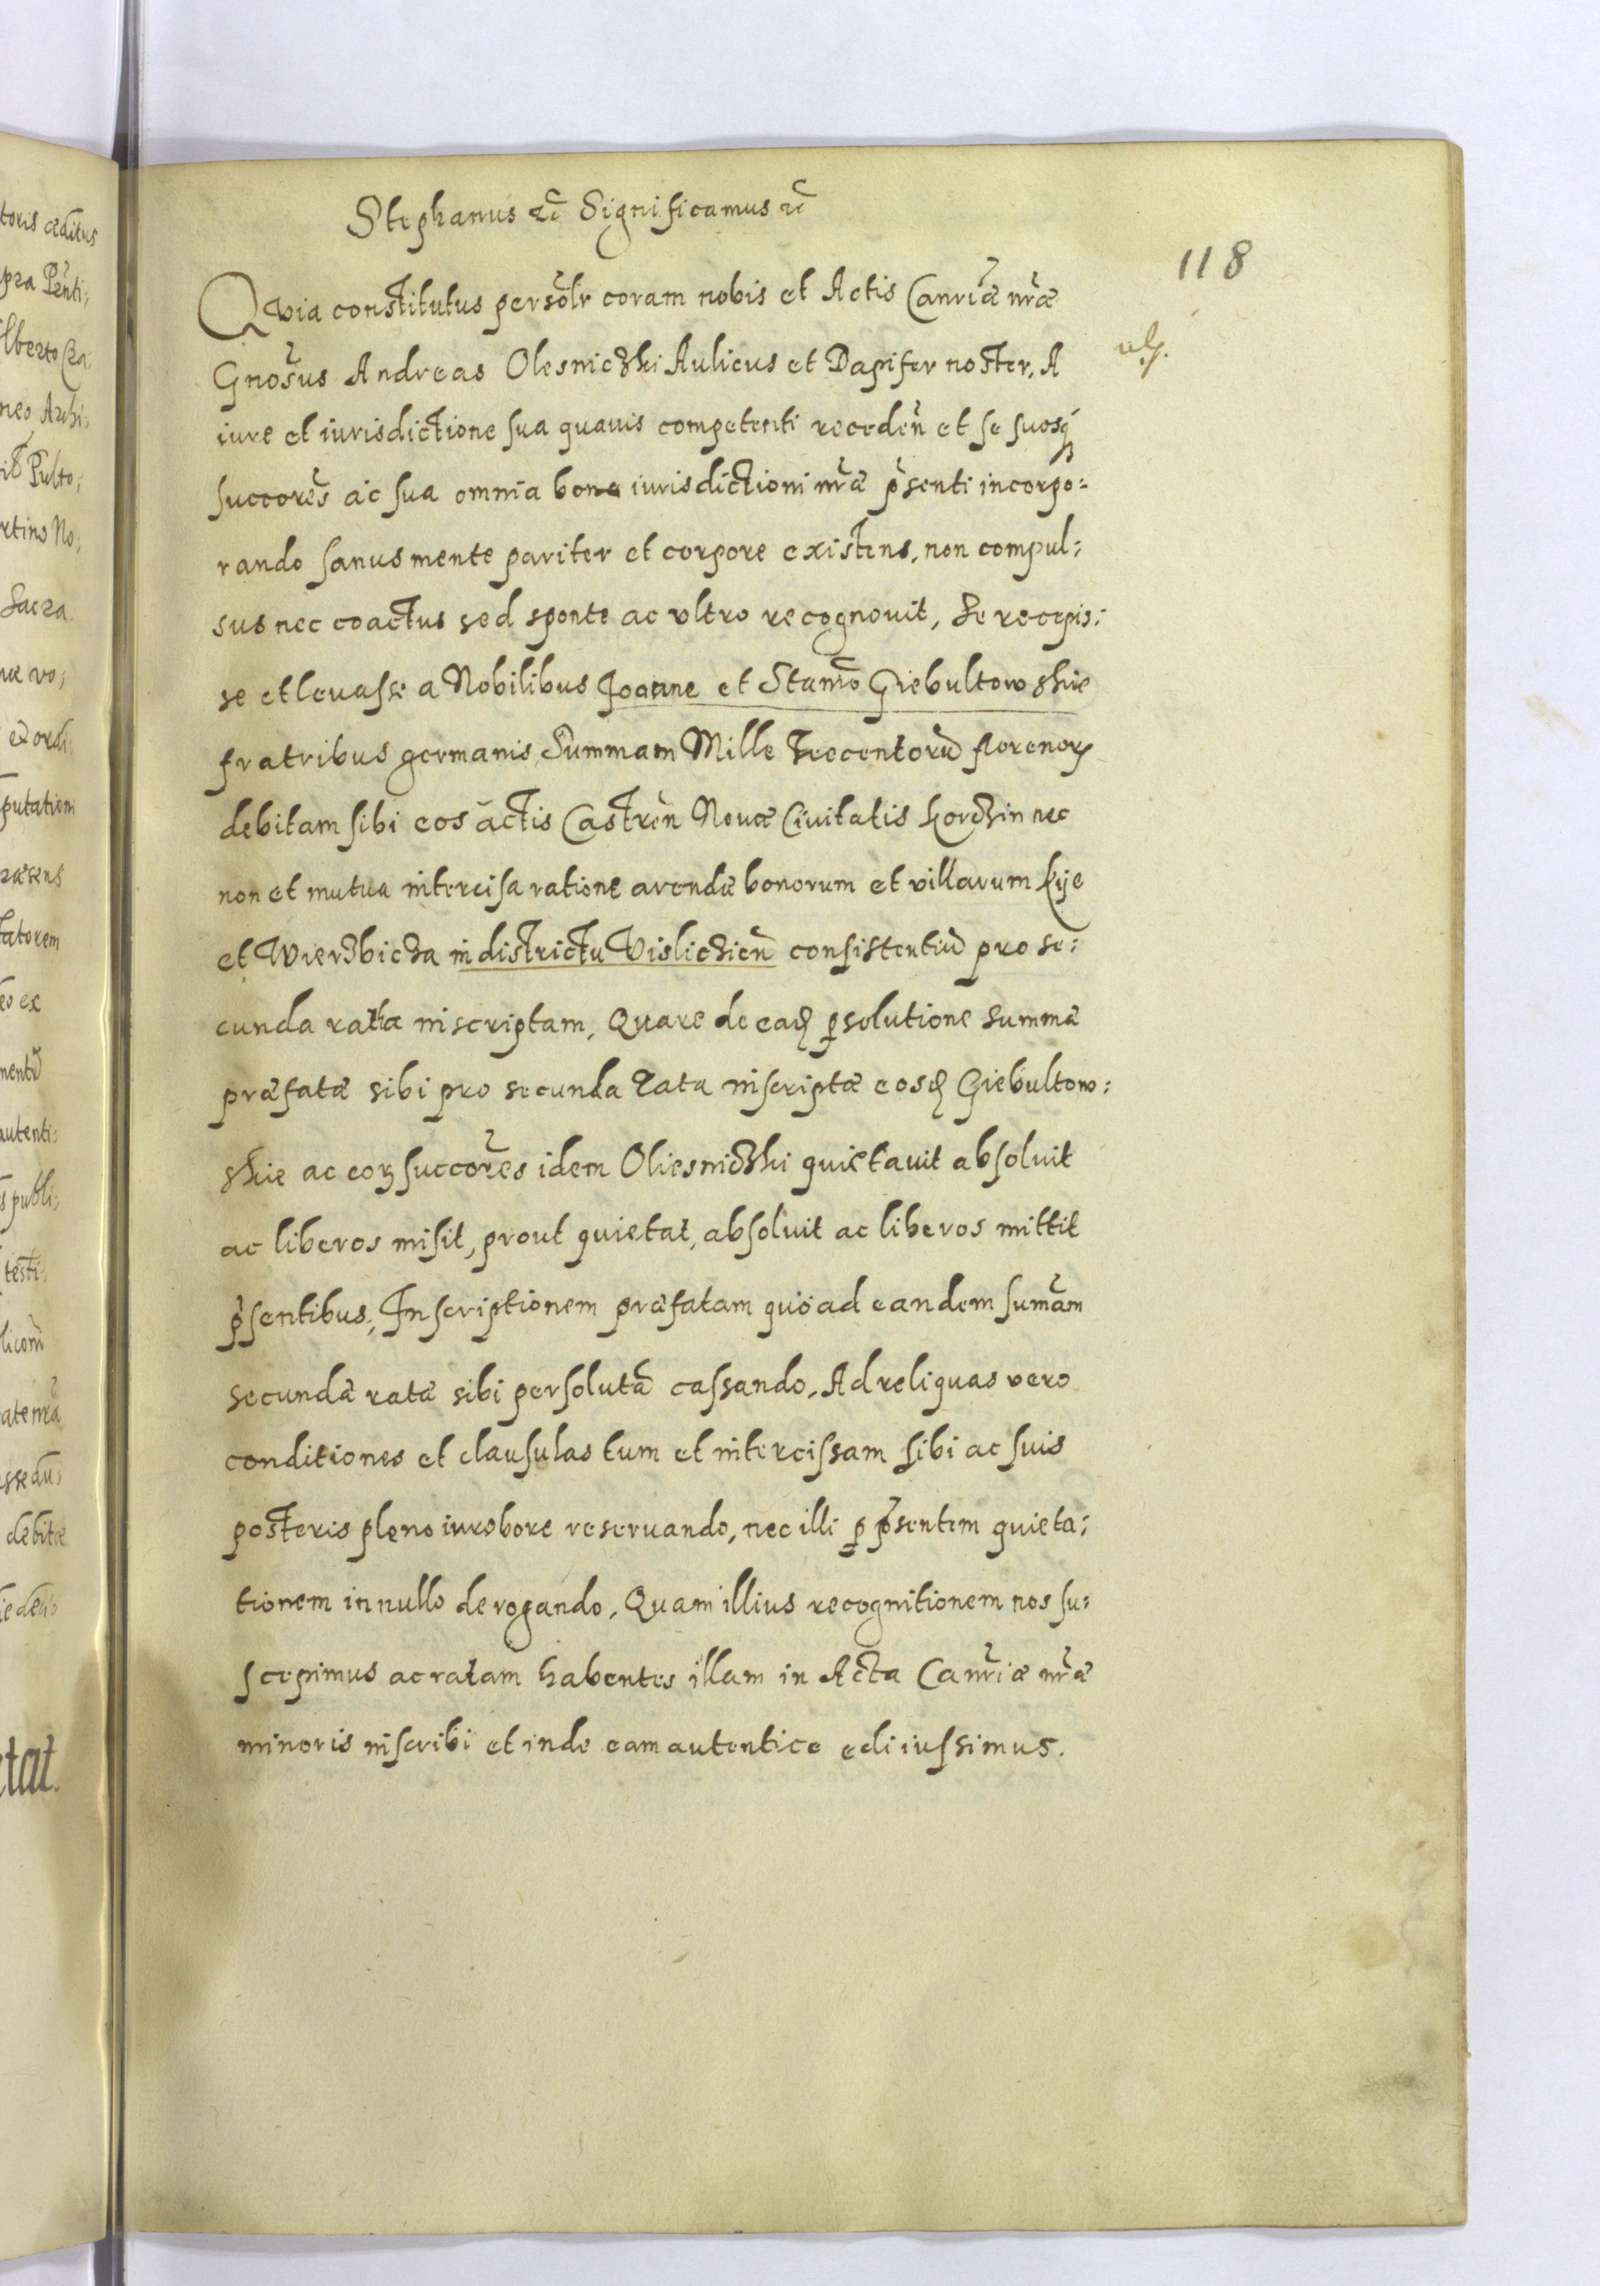 Stephanus etc Significamus etc
118
Quia constitutus persōlr coram nobis et Actis Canriæ nræ
Gnosus Andreas Olesniczki Aulicus et Dapifer noster, A
iure et iurisdictione sua quauis competenti receden et se suosq
succores ac sua omnia bona iurisdictioni nræ psenti incorpo:
rando sanus mente pariter et corpore existens, non compul:
sus nec coactus sed sponte ac vltro recognouit, se recepis:
se et leuasse a Nobilibus Joanne et Stanio Giebultowskie
fratribus germanis, Summam Mille Trecentorū florenor
debitam sibi eos actis Castren Nouæ Ciuitatis Korczin nec
non et mutua intercisa ratione arendæ bonorum et villarum Kije
et Wierzbicza in districtu Vislicien consistentiū pro se:
cunda rata inscriptam, Quare de eadē psolutione summæ
præfatæ sibi pro secunda Rata inscriptæ eosdē Giebultow:
skie ac eor succores idem Oliesniczki quietauit absoluit
ac liberos misit, prout quietat, absoluit ac liberos mittit
psentibus, Inscriptionem præfatam quo ad eandem sumam
secundæ ratæ sibi persolutā cassando, Ad reliquas vero
conditiones et clausulas tum et intercissam sibi ac suis
posteris pleno iurobore reseruando, nec illi p psentem quieta:
tionem in nullo derogando, Quam illius recognitionem nos su:
scepimus ac ratam habentes illam in Acta Canriæ nræ
minoris inscribi et inde eam autentice edi iussimus.